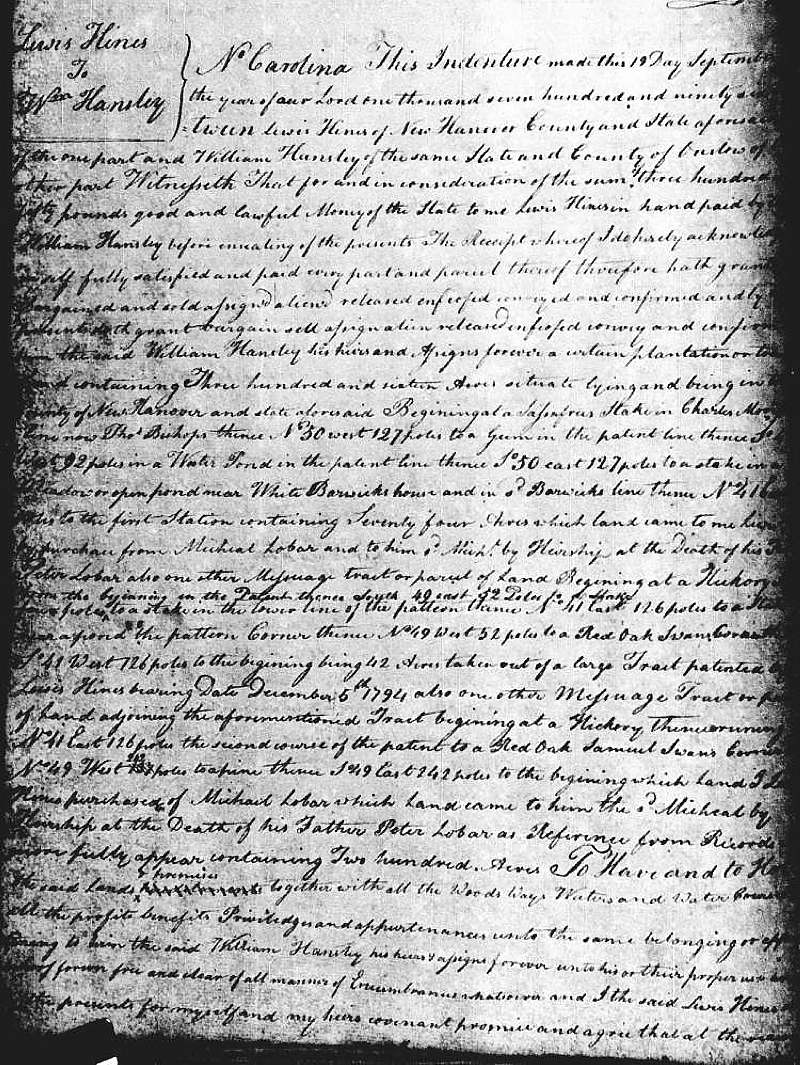 Lewis Hines
To
Wm Hansley
No Carolina This Indenture made this 19 Day Septemb
the year of our Lord one thousand seven hundred and ninety
tween Lewis Hines of New Hanover County and State aforesa
of the one part and William Hansley of the same State and County of Onslow of
other part Witnesseth That for and in consideration of the sum of three hundred
fifty pounds good and lawful Money of the State to me Lewis Hines in hand paid by
William Hansley before ensealing of the presents The Receipt whereof I do hereby acknowle
myself fully satisfied and paid every part and parcel thereof therefore hath gran
bargained and sold assign'd alien'd released enfeofed conveyed and confirmed and by
presents doth grant bargain sell assign alien released infeofed convey and confirm
the said William Hansley his heirs and Assigns forever a certain plantation or
land containing Three hundred and sixteen Acres situate lying and being in
County of New Hanover and state aforesaid Begining at a Sassafras Stake in Charles
line now Thos Bishops thence No 50 west 127 poles to a Gum in the patent line thence So
West 92 poles in a Water Pond in the patent line thence So 50 east 127 poles to a stake in a
Meadow or open pond near White Barwicks house and in sd Barwicks line thence No 41
poles to the first Station containing Seventy four Acres which land came to me
by purchase from Micheal Lobar and to him sd Michl by Heirship at the Death of his
Peter Lobar also one other Messuage tract or parcel of Land Begining at a Hickory
from the begining in the Patent thence South 49 east 52 Poles to a Stake
poles to a stake in the lower line of the pattern thence No 41 East 126 poles to a
near a pond the pattern Corner thence No 49 West 52 poles to a Red Oak Swans Corner
So 41 West 126 poles to the begining being 42 Acres taken out of a large Tract patented by
Lewis Hines bearing Date December 5th 1794 also one other Messuage Tract or
of Land adjoining the aforementioned Tract begining at a Hickory thence runing
No 41 East 126 poles the second course of the patent to a Red Oak Samuel Swans Corner
No 49 West poles to a pine thence So 49 East 242 poles to the begining which Land I
Hines purchased of Michael Lobar which Land came to him the sd Micheal by
Heirship at the Death of his Father Peter Lobar as Reference from Records
more fully appear containing Two hundred Acres To Have and to
& premises
the said Lands together with all the Woods Ways Waters and Water Courses
all the profits benefits Priviledges and appurtenances unto the same belonging or
to him the said William Hansley his heirs & assigns forever unto his or their proper use
forever free and clear of all manner of Encumbrances whatsoever and I the said Lewis Hines
the presents for myself and my heirs covenant promise and agree that at the